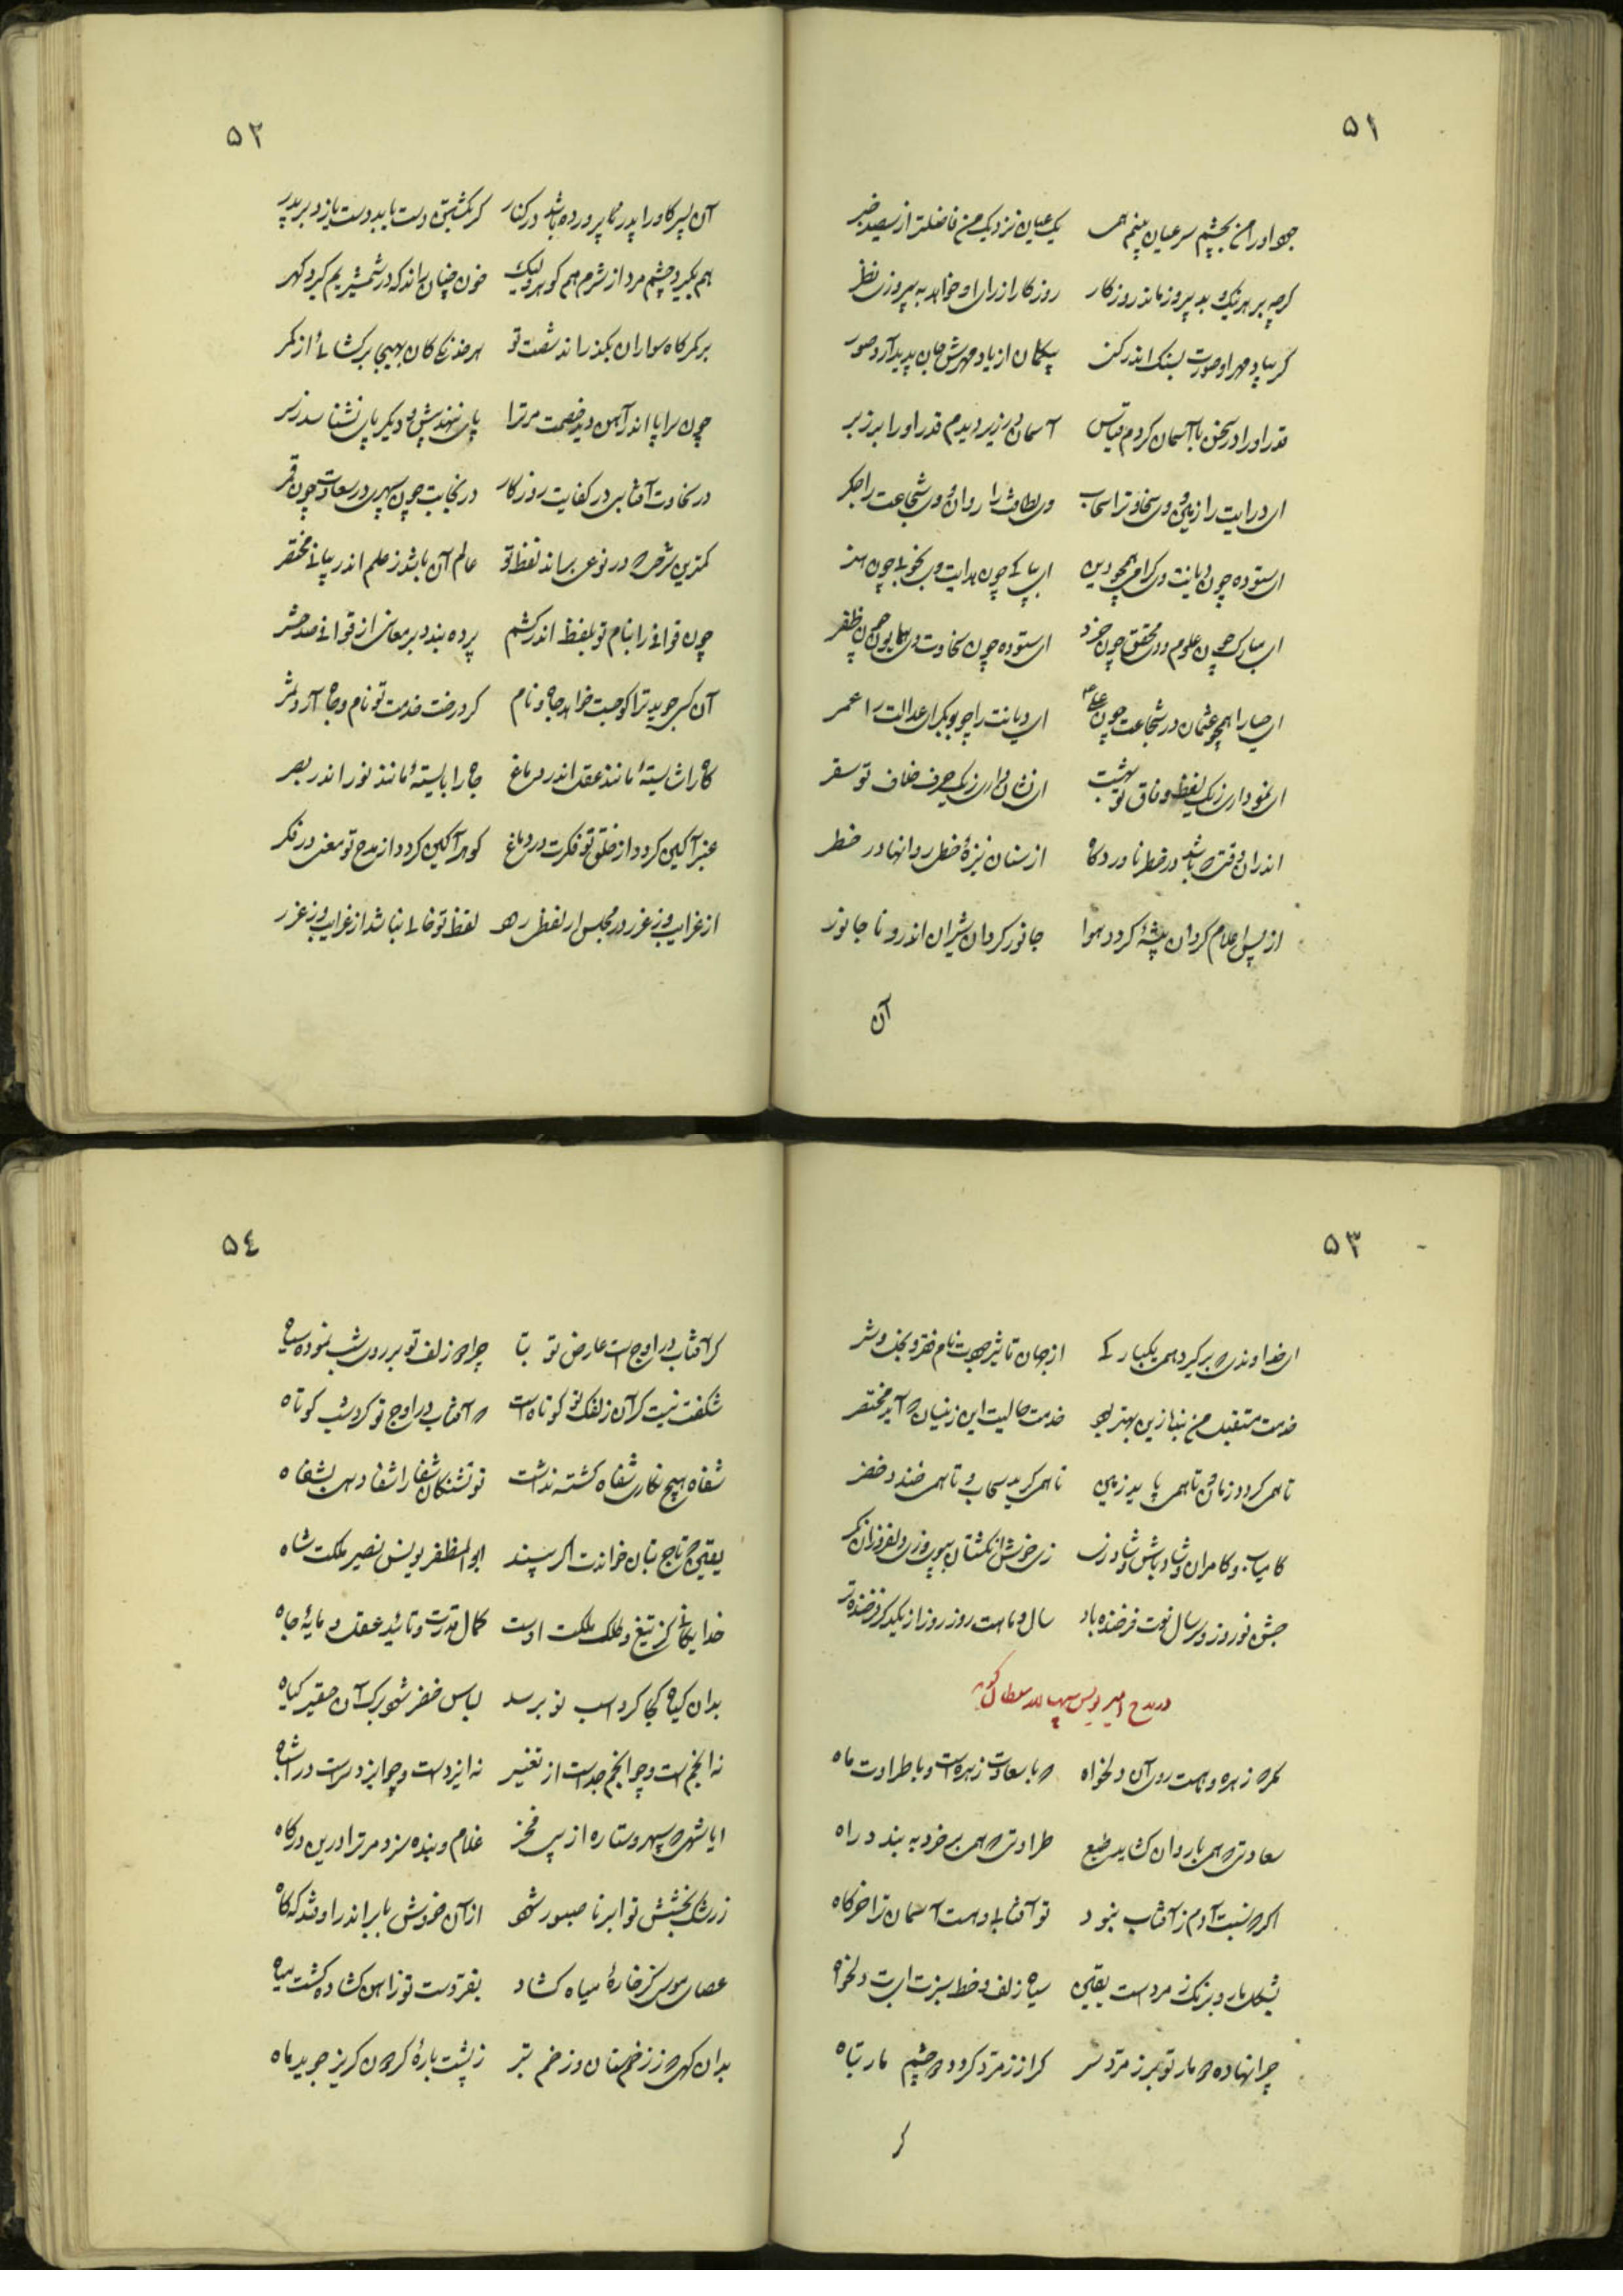 ۵۱
جود او را من بچشم سر عیان بینم همی یک عیان نزدیک من فاضلتر از سیصد خبر
گرچه بر هر نیک و بد پیروز ماند روزگار روزگار از رای او خواهد به پیروزی نظر
گر بیاد مهر او صورت بسنک اندر کنی بیگمان از یاد مهرش جان پدید آرد صور
قدر او را در سخن با آسمان کردم قیاس آسمان زیر دیدم قدر او را بر زبر
ای درایت را زمین و وی سخاوت را سحاب وی لطافت را روان و وی شجاعت را جگر
ای ستوده چون دیانت وی گرامی همچو دین ای بپاکی چون هدایت وی بخوبی چون هنر
ای مبارک چون علوم و وی محقق چون خرد ای ستوده چون سخاوت وی همایون چون ظفر
ای حیا را همچو عثمان در شجاعت چون علی ای دیانت را چو بوبکر ای عدالت را عمر
ای نموداری ز یک لفظ وفاق تو بهشت ای نشان داری ز یک حرف خلاف تو سقر
اندران وقتی که باشد در خط ناوردگاه از سنان نیزهٔ خطی روانها در خطر
از پس اعلام گردان بیشهٔ گردد هوا جانور گردان شیران اندرو نا جانور
آن
۵۲
آن پسر کاو را پدر پرورده باشد در کنار گر بکشتن دست یابد دست یازد بر پدر
هم بگیرد چشم مرد از شرم هم گوهر ولیک خون چنان راند که در شمشیر یم گیرد گهر
بر کمرگاه سواران بگذراند شست تو هر خدنگی کان بهیجا برکشائی از کمر
چون سراپا اندر آهن دید خصمت مر ترا پای ننهد پیش و دیگر پای نشناسد ز سر
در سخاوت آفتابی در کفایت روزگار در نجابت چون سپهری در سعادت چون قمر
کمترین شرحی که در نوعی بساند لفظ تو عالم آن باشد ز علم اندر بیانی مختصر
چون قوافی را بنام تو بلفظ اندر کشم پرده بندد بر معانی از قوافی صد حشر
آن کسی جوید ترا کو حبت خواهد جاه و نام کز درخت خدمت تو نام و جاه آرد ثمر
گاه را شایستهٔ مانند عقل اندر دماغ جاه را بایستهٔ مانند نور اندر بصر
عنبر آگین گردد از خلق تو فکرت در دماغ گوهر آگین گردد از مدح تو معنی در فکر
از غرایب وز غرر در مجلس ار لفظی رهد لفظ تو خالی نباشد از غرایب وز غرر
۵۳
ای خداوندی که برگیرد همی یکبارگی از جهان تاثیر جودت نام فقر و بخل و شر
خدمت مستقبل من بنده زین بهتر بود خدمت حالیست این زینسان که آید مختصر
تا همی گردد زمان و تا همی پاید زمین تا همی گرید سحاب و تا همی خندد خضر
کامیاب و کامران و شاد باش و شاد زی زی خوش انگشتان بپیروزی و لفروزان نگر
جشن نوروز و سر سال نوت فرخنده باد سال و ماهت روز روز از یکدگر فرخنده تر
در مدح امیر یونس سپهسالار سلطان گوید
مگر که زهره و ماهست روی آن دلخواه که با سعادت زهره است و با طراوت ماه
سعادتی که همی با روان کشاید طبع طراوتی که همی بر خرد ببندد راه
اگر که نسبت آدم ز آفتاب نبود تو آفتابی و هست آسمان ترا خرگاه
بشکل مار و برنگ زمرد است یقین سیاه زلف و خط سبزت ای بت دلخواه
چرا نهاده که مار تو بر زمرد سر گر از زمرد گردد که چشم مار تباه
گر
۵۴
گر آفتاب در اوجست عارض تو بتا چرا که زلف تو بر روی شب نموده سیاه
شگفت نیست گر آن زلفک تو کوتاه است که آفتاب در اوج تو کرد شب کوتاه
شفاه هیچ نگاری شفاه گشته نداشت تو تشنگان شفا را شفا دهی بشفاه
یقین که تاج بتان خواندت اگر بیند ابوالمظفر یونس نصیر ملکت شاه
خدایگانی کز تیغ و کلک ملکت اوست کمال قدرت و تائید عقل و مایهٔ جاه
بدان گیاه کجا گرد اسب تو برسد لباس خضر شود برک آن حقیر گیاه
نه انجم است و چو انجم جداست از تغییر نه ایزدست و چو ایزد برست از اشباه
ایا شهی که سپهر و ستاره از پی فخر غلام و بنده سزد مر ترا درین درگاه
ز رشک بخشش تو ابر ناصبور شود از آن خروش بابر اندر اوفتد گه گاه
عصای موسی گر خارهٔ سیاه گشاد بفر دست تو ز اهن گشاده گشت میاه
بدان گهی که ز زخم سنان و زخم تبر ز پشت بارهٔ گردون گریز جوید ماه